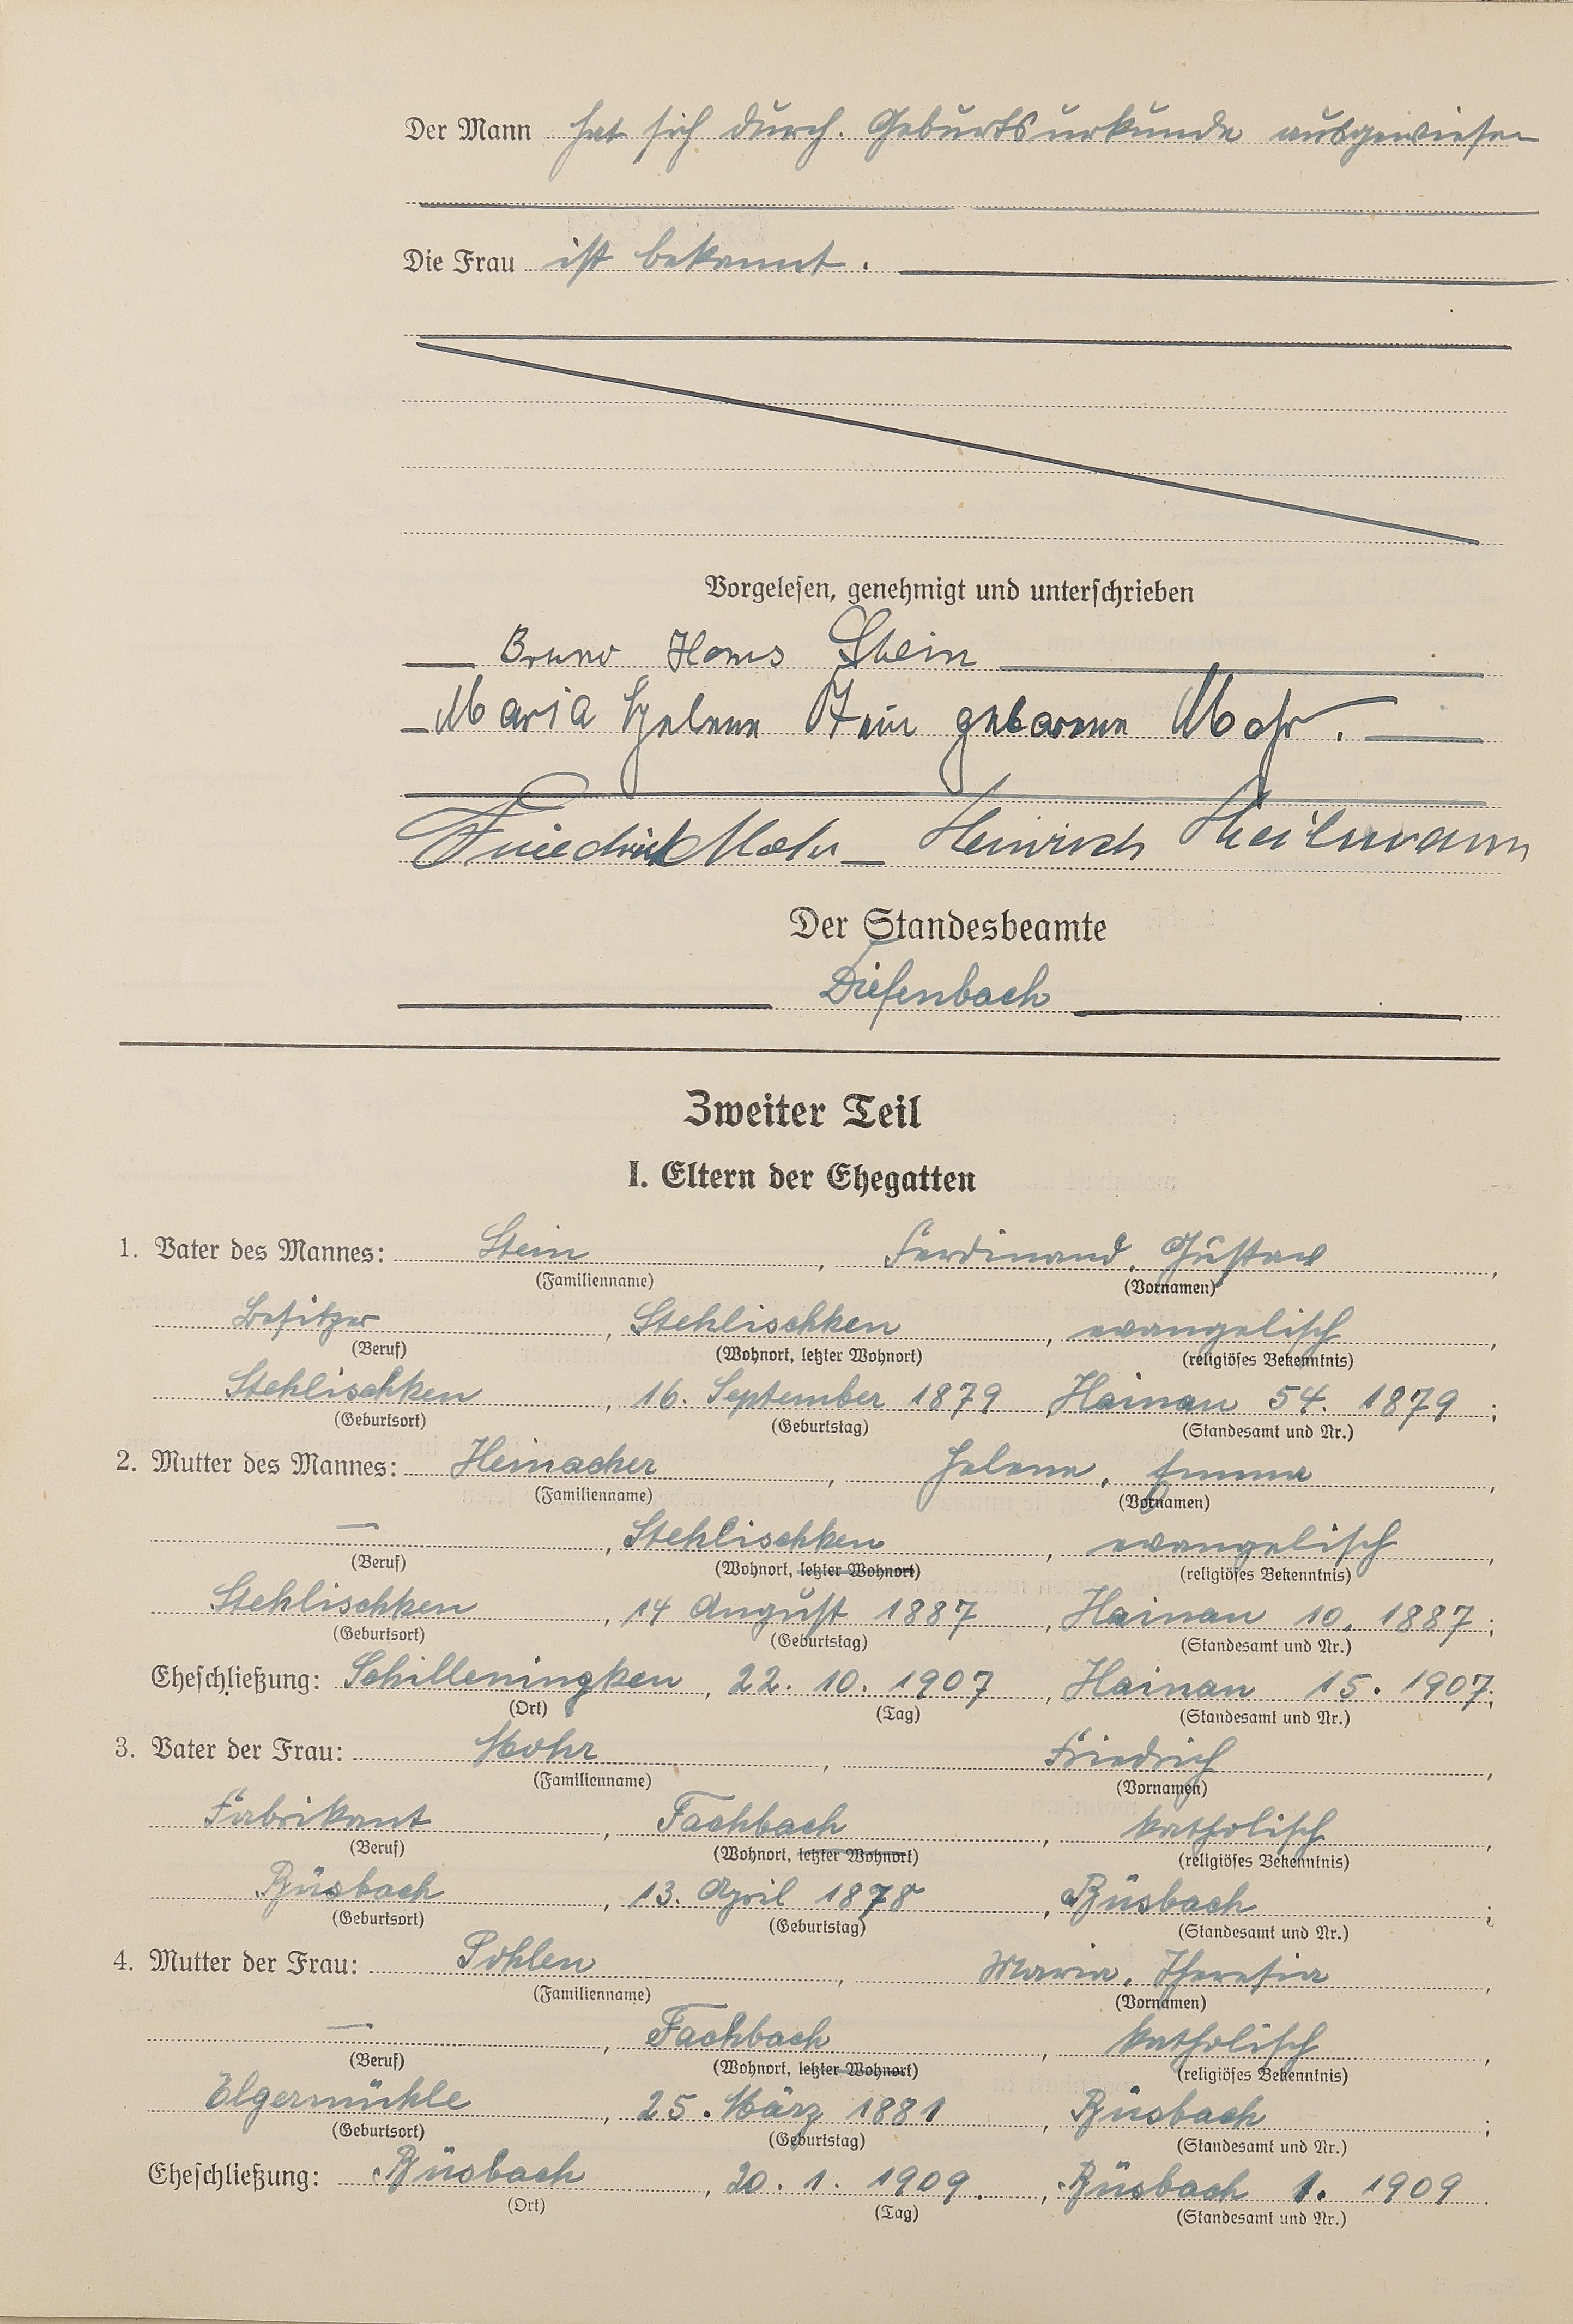 Der Mann hat sich durch. Geburtsurkunde ausgewiesen
Die Frau ist bekannt.
Vorgelesen, genehmigt und unterschrieben
Bruno Hans Stein
Maria Helene Stein geborene Mohr.
Friedrich Mohr Heinrich Heilmann
Der Standesbeamte
Diefenbach
Zweiter Teil
I. Eltern der Ehegatten
1. Vater des Mannes: Stein, Ferdinand, Gustav,
(Familienname) (Vornamen)
Besitzer, Stehlischken, evangelisch,
(Beruf) (Wohnort, letzter Wohnort) (religiöses Bekenntnis)
Stehlischken, 16. September 1879, Hainau 54. 1879;
(Geburtsort) (Geburtstag) (Standesamt und Nr.)
2. Mutter des Mannes: Heinacher, Helene, Emma,
(Familienname) (Vornamen)
—, Stehlischken, evangelisch,
(Beruf) (Wohnort, letzter Wohnort) (religiöses Bekenntnis)
Stehlischken, 14 August 1887, Hainau 10. 1887;
(Geburtsort) (Geburtstag) (Standesamt und Nr.)
Eheschließung: Schilleningken, 22. 10. 1907, Hainau 15. 1907;
(Ort) (Tag) (Standesamt und Nr.)
3. Vater der Frau: Mohr, Friedrich,
(Familienname) (Vornamen)
Fabrikant, Fachbach, katholisch,
(Beruf) (Wohnort, letzter Wohnort) (religiöses Bekenntnis)
Rüsbach, 13. April 1878, Rüsbach;
(Geburtsort) (Geburtstag) (Standesamt und Nr.)
4. Mutter der Frau: Pohlen, Maria, Theresia,
(Familienname) (Vornamen)
—, Fachbach, katholisch,
(Beruf) (Wohnort, letzter Wohnort) (religiöses Bekenntnis)
Elgermühle, 25. März 1881, Rüsbach;
(Geburtsort) (Geburtstag) (Standesamt und Nr.)
Eheschließung: Rüsbach, 20. 1. 1909., Rüsbach 1. 1909.
(Ort) (Tag) (Standesamt und Nr.)